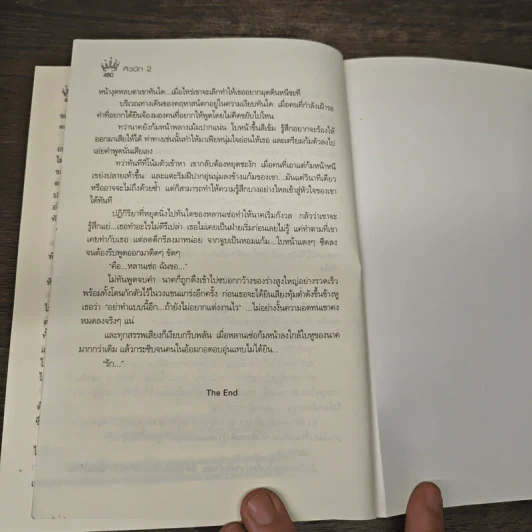 ศิวนัท 2
480
หน้างุดหลบตาเขาทันใด...เมื่อไหร่เขาจะเลิกทำให้เธออยากมุดดินหนีซะที
บริเวณทางเดินของคฤหาสน์ตกอยู่ในความเงียบทันใด เมื่อคนที่กำลังเฝ้ารอ
คำที่อยากได้ยินจ้องมองคนที่อยากให้พูดโดยไม่คิดขยับไปไหน
ทว่านาคยังก้มหน้าพลางเม้มปากแน่น ใบหน้าขึ้นสีเข้ม รู้สึกอยากจะร้องไห้
ออกมาเสียให้ได้ ท่าทางเช่นนั้นทำให้มาเฟียหนุ่มใจอ่อนให้เธอ และเตรียมก้มตัวลงไป
เอ่ยคำพูดนั้นเสียเอง
ทว่าทันทีที่โน้มตัวเข้าหา เขากลับต้องหยุดชะงัก เมื่อคนที่เอาแต่ก้มหน้าหนี
เขย่งปลายเท้าขึ้น และแตะริมฝีปากอุ่นนุ่มลงข้างแก้มของเขา...มันแค่วินาทีเดียว
หรืออาจจะไม่ถึงด้วยซ้ำ แต่ก็สามารถทำให้ความรู้สึกบางอย่างไหลเข้าสู่หัวใจของเขา
ได้ทันที
ปฏิกิริยาที่หยุดนิ่งไปทันใดของหลานเซ่อทำให้นาคเริ่มกังวล กลัวว่าเขาจะ
รู้สึกแย่...เธอทำอะไรไม่ดีรึเปล่า เธอไม่เคยเป็นฝ่ายเริ่มก่อนเลยไม่รู้ แค่ทำตามที่เขา
เคยทำกับเธอ แต่ลดดีกรีลงมาหน่อย จากจูบเป็นหอมแก้ม...ใบหน้าแดงๆ ซีดลง
จนต้องรีบพูดออกมาติดๆ ขัดๆ
"คือ...หลานเซ่อ ฉันขอ..."
ไม่ทันพูดจบคำ นาคก็ถูกดึงเข้าไปซบอกกว้างของร่างสูงใหญ่อย่างรวดเร็ว
พร้อมทั้งโดนกักตัวไว้ในวงแขนแกร่งอีกครั้ง ก่อนเธอจะได้ยินเสียงทุ้มต่ำดังขึ้นข้างหู
เธอว่า "อย่าทำแบบนี้อีก...ถ้ายังไม่อยากแต่งงานไว" ...ไม่อย่างงั้นความอดทนเขาคง
หมดลงจริงๆ แน่
และทุกสรรพเสียงก็เงียบกริบพลัน เมื่อหลานเซ่อก้มหน้าลงใกล้ใบหูของนาค
มากกว่าเดิม แล้วกระซิบจนคนในอ้อมกอดตอบอุ่นแทบไม่ได้ยิน...
"รัก..."
The End